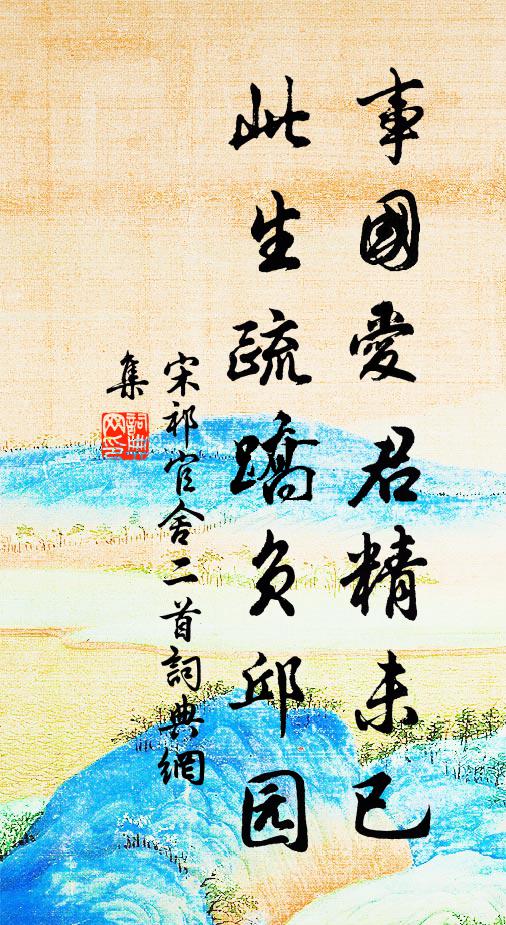 事國愛君精未已
此生疏蹻負邱园
宋祁官舍二首詞典網
集
詞典網印